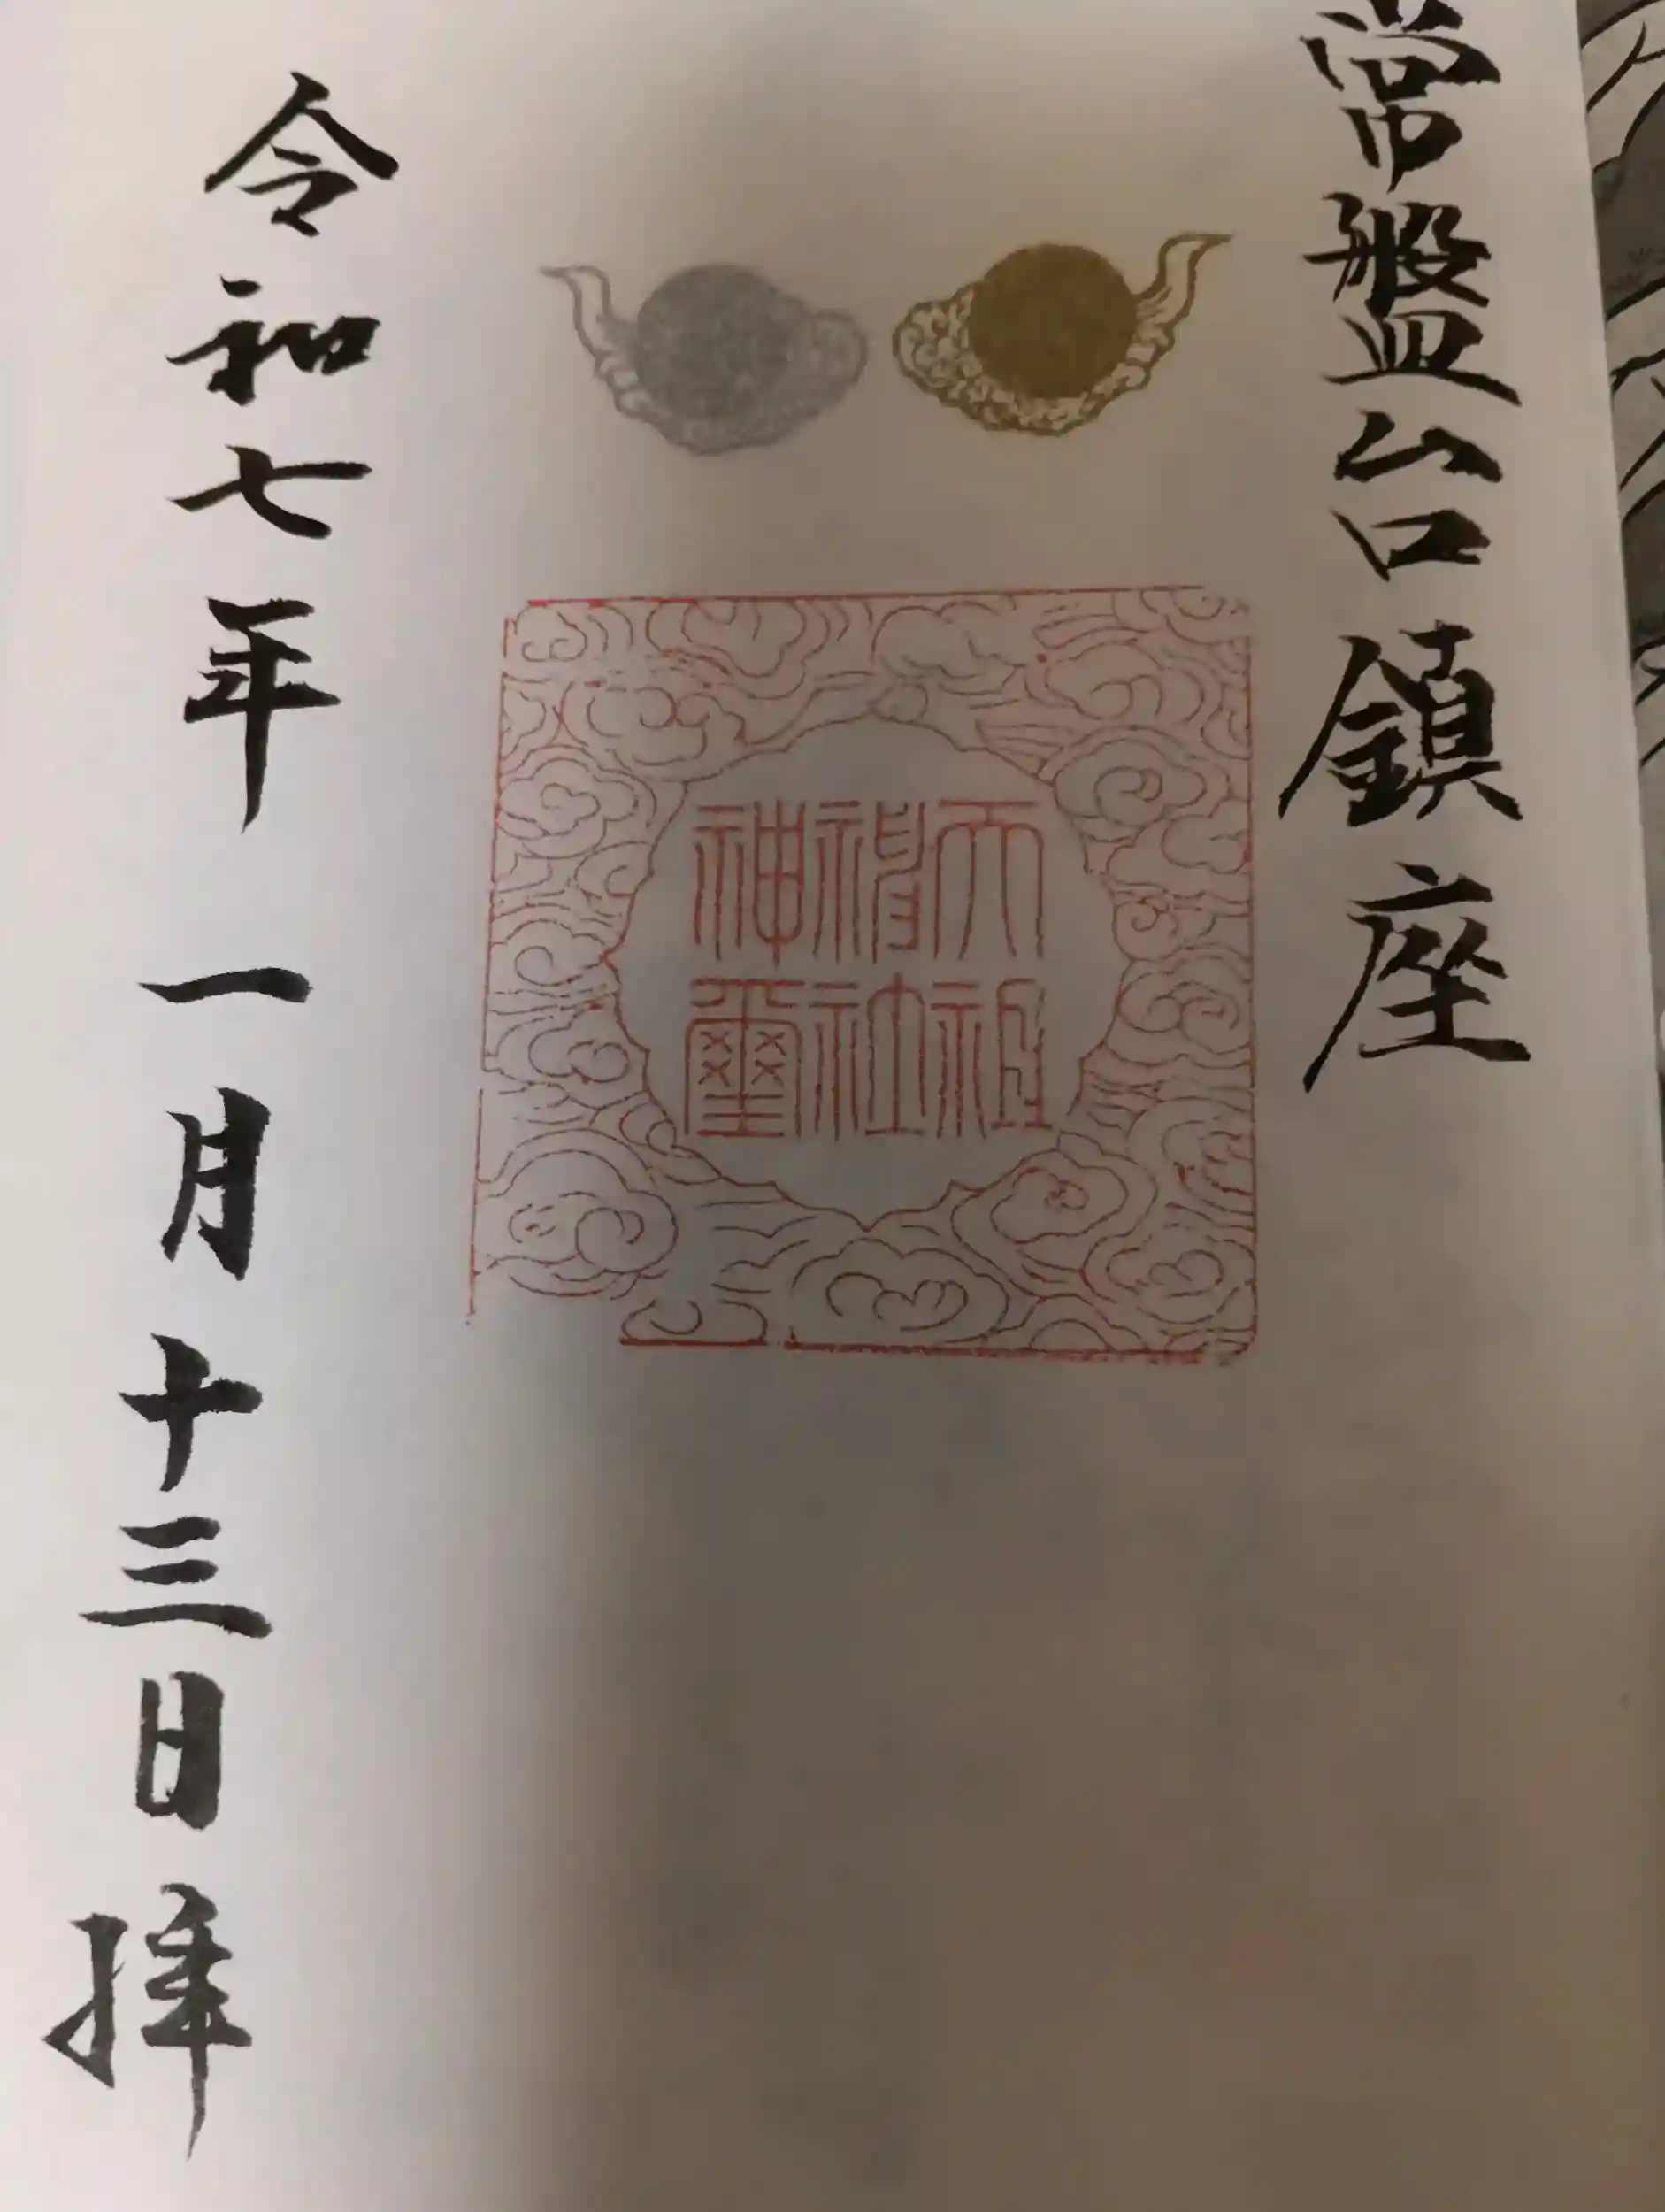 常盤台鎮座
天祖
神社
神璽
令和七年一月十三日拝